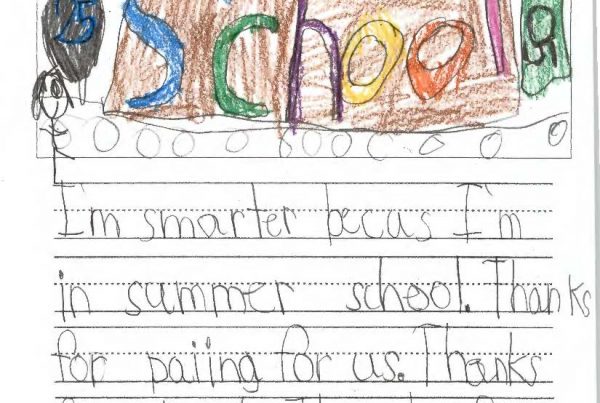 25 School 25
I'm smarter becus I'm
in summer school. Thanks
for paiing for us. Thanks